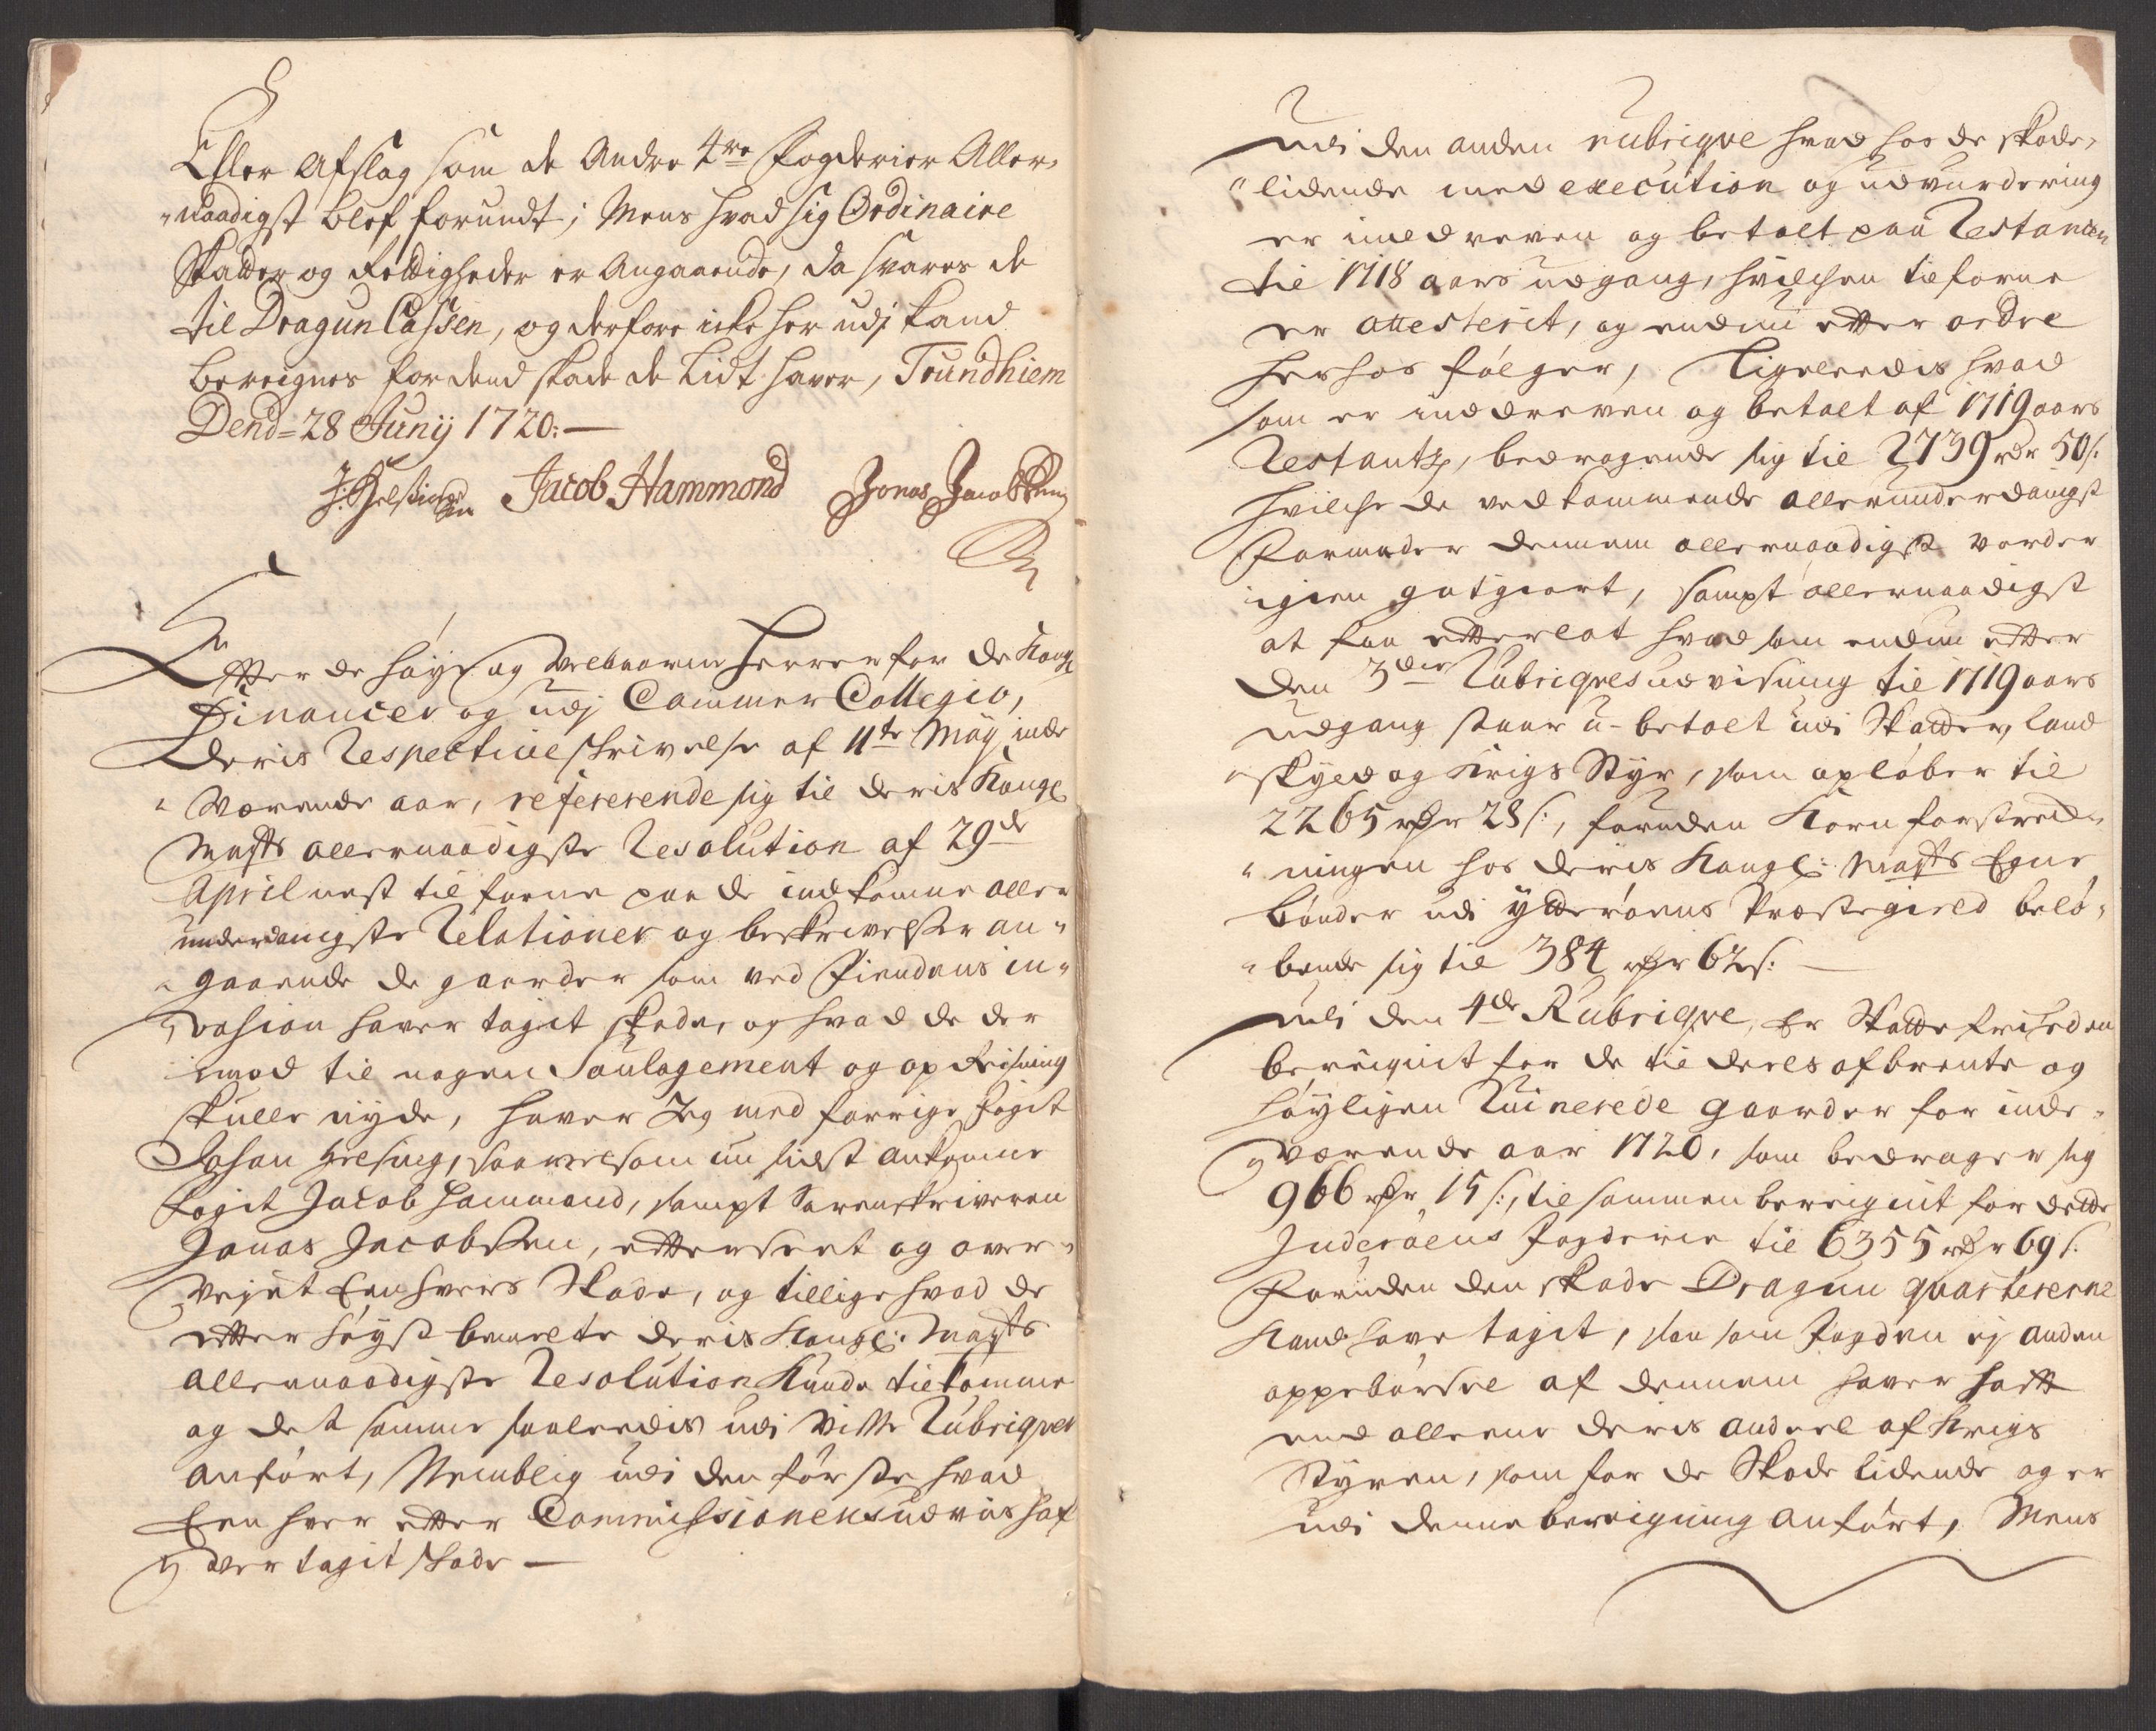 Eller Afslag som de Andre 4re Fogderier Aller-
naadigst blef forundt; Mens hvad sig Ordinaire
Skatter og Rettigheder er Angaaende, da svares de
til DragunCassen, og derfore icke her udj kand
bereignes for dend skade de Lidt haver, Trundhiem
Dend=28 Junij 1720:—
Jacob Hammond Jonas Jacobsen
Efter de høye og Velbaarne Herrer for de Kongl
Financer og udj Cammer Collegio,
Deris Respective skrivelse af 11te Maij inde
værende aar, refererende sig til deris Kongl
Maÿts allernaadigste Resolution af 29de
April nest tilforne paa de indkomne aller
underdanigste Relationer og beskrivelser an-
gaaende de gaarder som ved Fiendens in-
vasion haver tagit skade, og hvad de der
imod til nogen Soulagement og opreisning
skulle nyde, haver Jeg med forrige fogit
Johan Helsing, saavelsom nu sidst ankomne
fogit Jacob Hammond, sampt Sorenskriveren
Jonas Jacobsen, efterseet og over-
vejet Eenhvers Skade, og tillige hvad de
efter høyst bemelte deris Kongl: Maÿts
allernaadigste Resolution Kunde tilkomme
og det samme saaledis udi visse Rubriqver
anført, Nemblig udi den første hvad
Een hver efter Commissionens udviis haf
ver tagit skade —
Udi den anden rubriqve hvad hos de skade-
lidende med execution og udvurdering
er inddreven og betalt paa Restancen
til 1718 aars udgang, hvilchen tilforne
er attesterit, og endnu efter ordre
herhos følger, Ligeleedis hvad
som er inddreven og betalt af 1719 aars
Restantz, bedragende sig til 2739 rdr 50 s:
hvilche de vedkommende allerunderdanigst
formoder dennem allernaadigst vorder
igien gotgiort, sampt allernaadigst
at faa efterlat hvad som endnu efter
den 3die Rubriqves udvisning til 1719 aars
udgang staar u-betalt udi Skatter, Land
skyld og Krigs Styr, som opløber til
2265 rdr 28 s:, foruden Kornforstreck-
ningen hos deris Kongl: Maÿts Egne
bønder udi Ytterøens Præstegield belø-
bende sig til 384 rdr 62 s: —
Udi den 4de Rubriqve, Er Skattefriheden
bereignit for de til deels afbrente og
høyligen Ruinerede gaarder for inde-
værende aar 1720, som bedrager sig
966 rdr 15 s:, tilsammen bereignit for dette
Inderøens Fogderie til 6355 rdr 69 s:
Foruden den skade Dragun qvartererne
Kand have tagit, saa som Fogden ej anden
oppebørsel af dennem haver haft
end alleene deris andeel af Krigs
Styren, som for de Skade lidende og er
udi denne bereigning anført, Mens